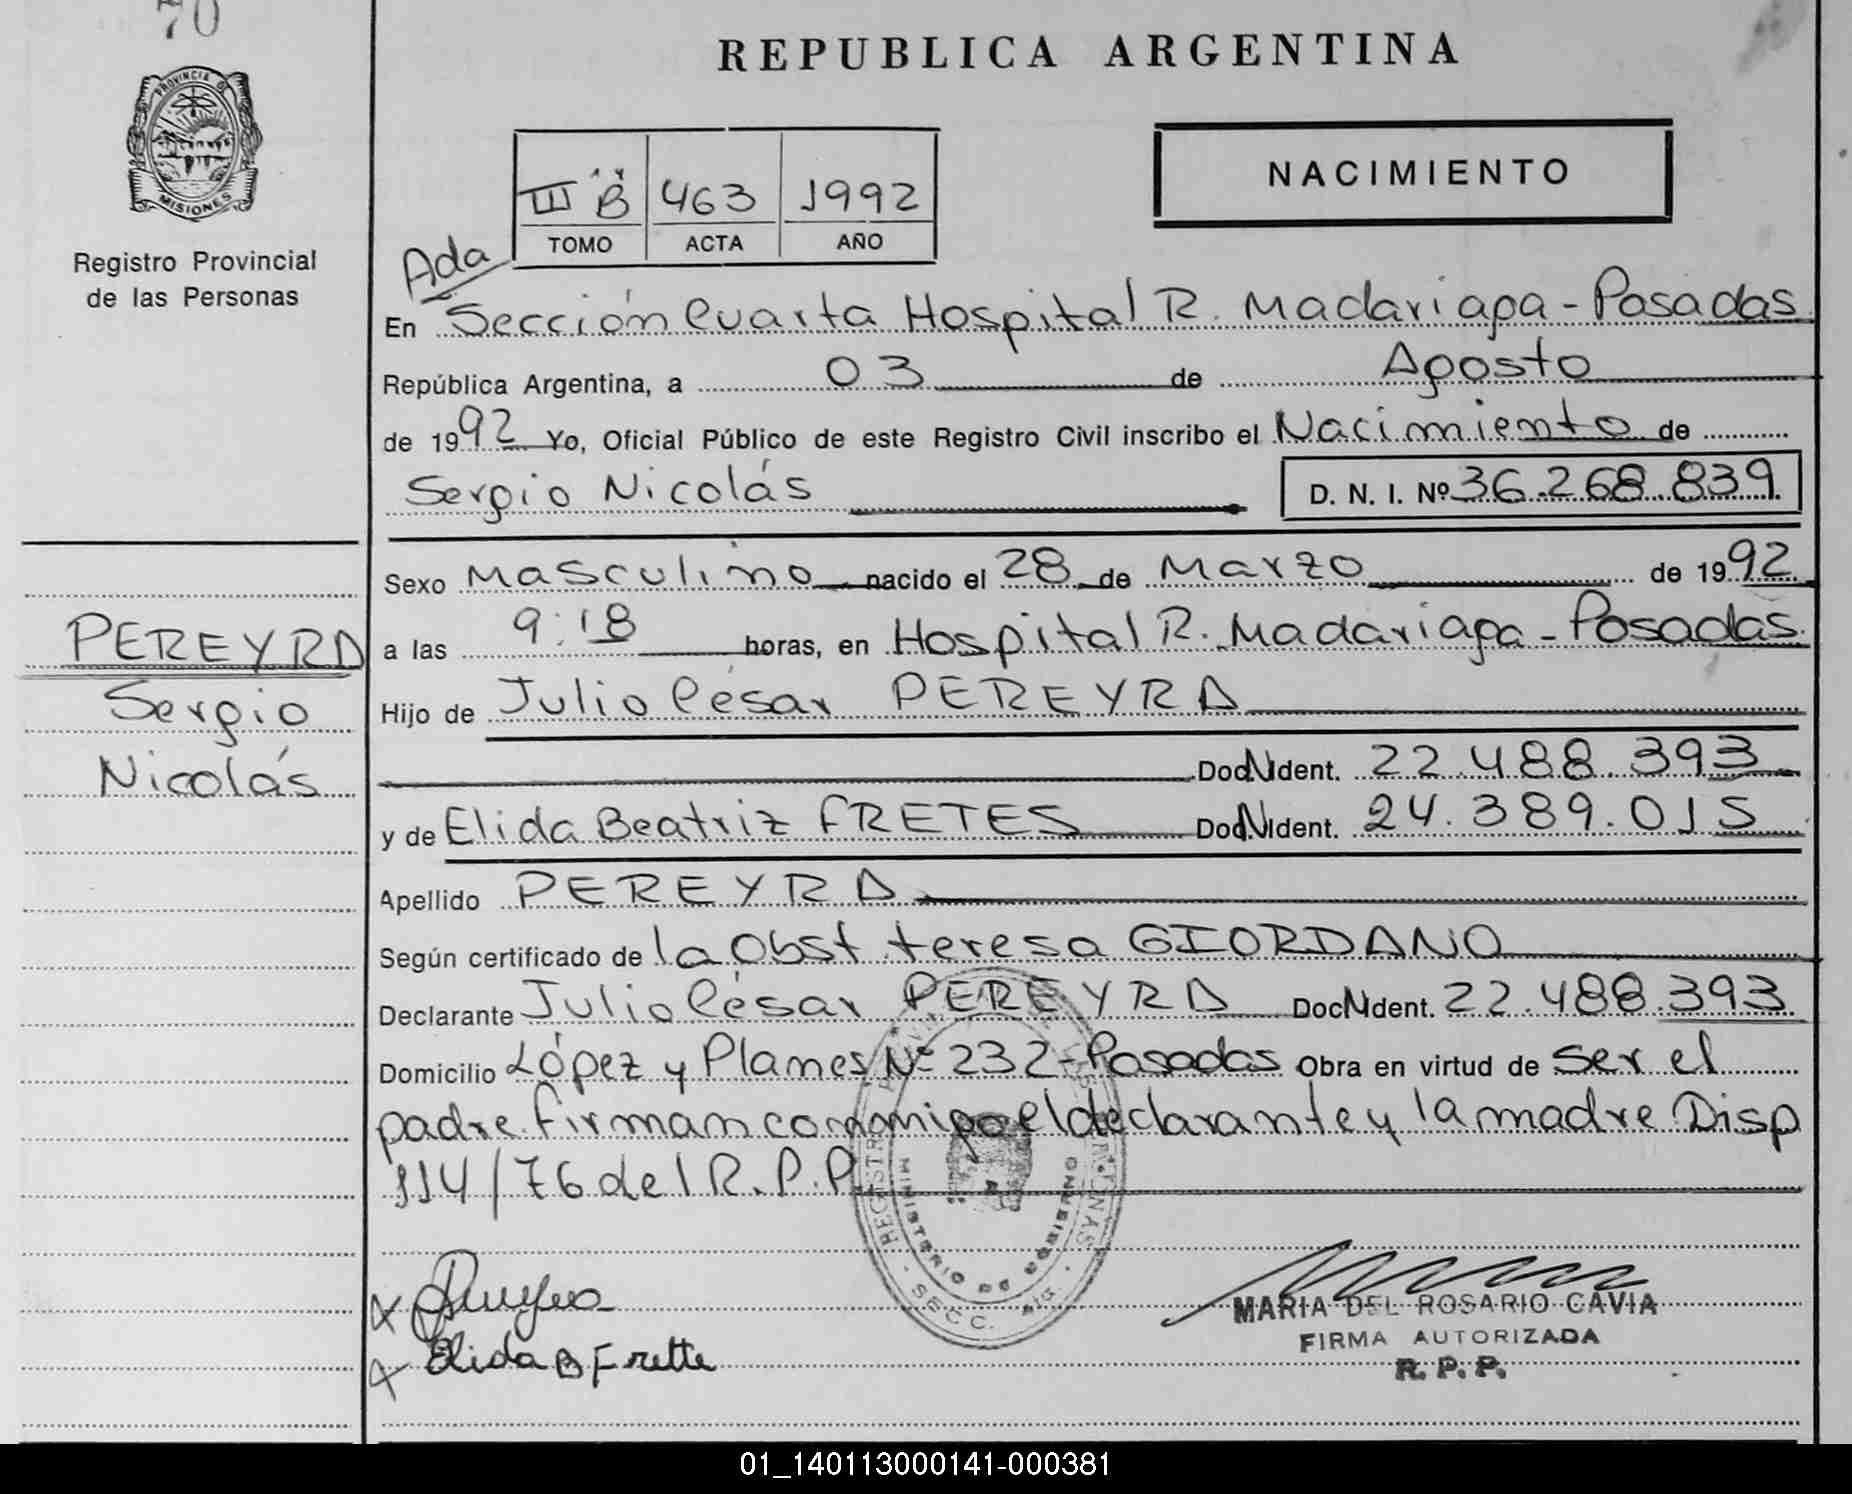 70
REPUBLICA ARGENTINA
PROVINCIA DE
MISIONES
Registro Provincial
de las Personas
NACIMIENTO
III "B" 463 1992
TOMO ACTA AÑO
Ada
En Sección Cuarta Hospital R. Madariaga - Posadas
República Argentina, a 03 de Agosto
de 1992 Yo, Oficial Público de este Registro Civil inscribo el Nacimiento de
Sergio Nicolás D. N. I. Nº 36.268.839
Sexo Masculino nacido el 28 de Marzo de 1992
a las 9:18 horas, en Hospital R. Madariaga - Posadas.
Hijo de Julio César PEREYRA
Doc. Ident. 22.488.393
y de Elida Beatriz FRETES Doc. Ident. 24.389.015
Apellido PEREYRA
Según certificado de la Obst. teresa GIORDANO
Declarante Julio César PEREYRA Doc. Ident. 22.488.393
Domicilio López y Planes Nº 232 - Posadas Obra en virtud de ser el
padre. firman conmigo el declarante y la madre Disp
114/76 del R.P.P.
PEREYRA
Sergio
Nicolás
Elida B Frette
MARIA DEL ROSARIO CAVIA
FIRMA AUTORIZADA
R. P. P.
MINISTERIO DE GOBIERNO
SECC. 4ta
01_140113000141-000381